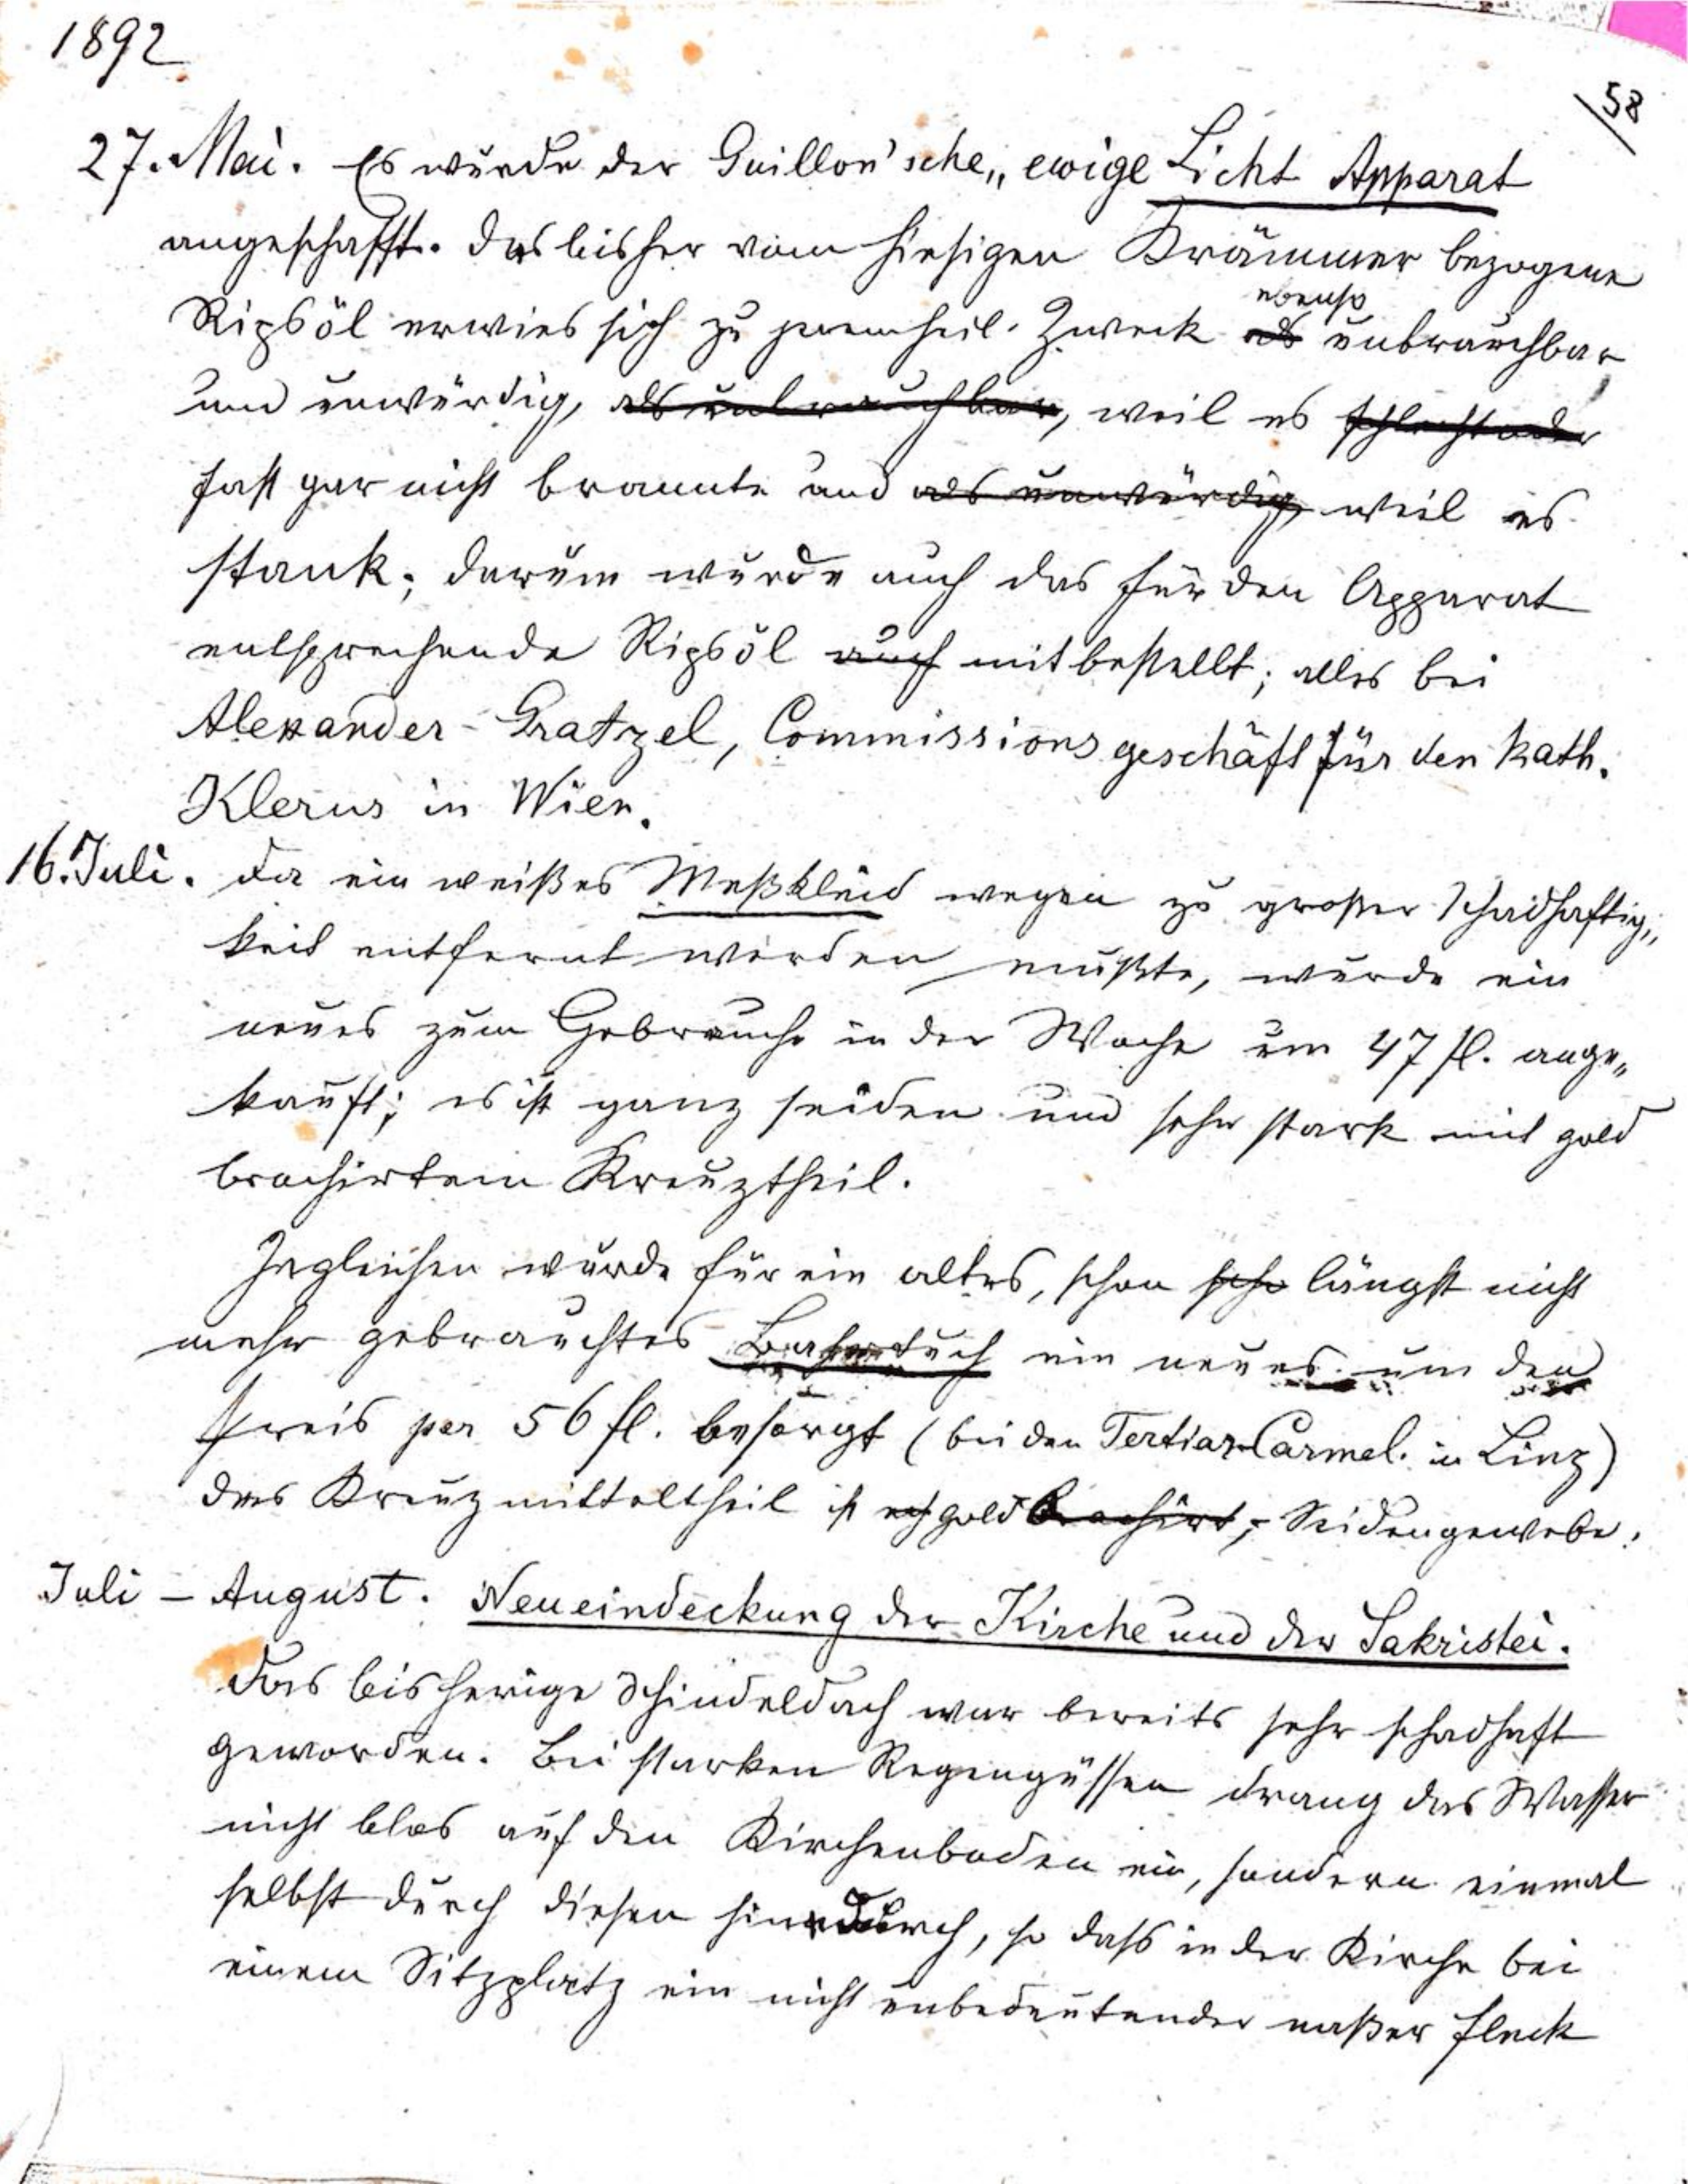 1892
58
27. Mai. Es wurde der Guillon'sche „ewige Licht Apparat
angeschafft. Das bisher vom hiesigen Krämmer bezogene
Ripsöl erwies sich zu jenem heil. Zweck als ebenso unbrauchbar
und unwürdig, als unbrauchbar, weil es schlecht oder
fast gar nicht brannte und als unwürdig, weil es
stank; darum wurde auch das für den Apparat
entsprechende Ripsöl auch mitbestellt; alles bei
Alexander Gratzel, Commissionsgeschäft für den kath.
Klerus in Wien.
16. Juli. Da ein weißes Meßkleid wegen zu großer Schadhaftig„
keit entfernt werden mußte, wurde ein
neues zum Gebrauche in der Woche um 47 fl. ange„
kauft; es ist ganz seiden und sehr stark mit gold
brochirtem Kreuztheil.
Ingleichen wurde für ein altes, schon sehr längst nicht
mehr gebrauchtes Bahrtuch ein neues um den
Preis per 56 fl. besorgt (bei den Tertiar-Carmel. in Linz)
das Kreuzmitteltheil ist gold brochirt, Seidengewebe.
Juli – August. Neueindeckung der Kirche und der Sakristei.
Das bisherige Schindeldach war bereits sehr schadhaft
geworden. Bei starken Regengüssen drang das Wasser
nicht blos auf den Kirchenboden ein, sondern einmal
selbst durch diesen hindurch, so dass in der Kirche bei
einem Sitzplatz ein nicht unbedeutender naßer Fleck